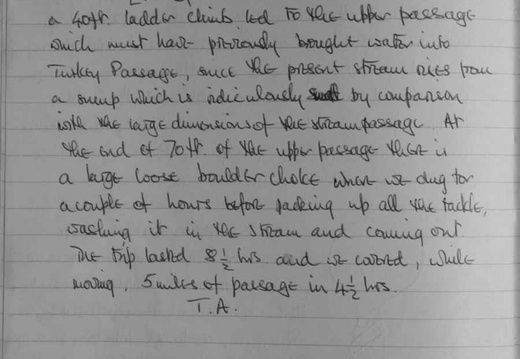 a 40ft. ladder climb led to the upper passage
which must have previously brought water into
Turkey Passage, since the present stream rises from
a sump which is ridiculously small by comparison
with the large dimensions of the stream passage. At
the end of 70ft of the upper passage there is
a large loose boulder choke where we dug for
a couple of hours before packing up all the tackle,
washing it in the stream and coming out
The trip lasted 8½ hrs and we covered, while
moving, 5 miles of passage in 4½ hrs.
T.A.